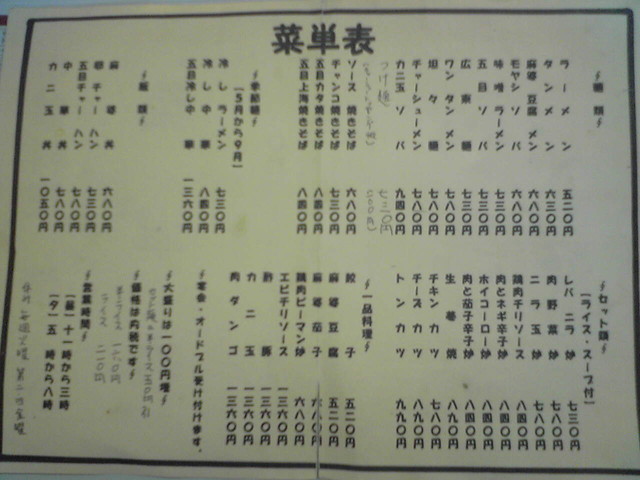 菜単表
麺類
ラーメン 五二〇円
タンメン 六三〇円
麻婆豆腐メン 六八〇円
モヤシソバ 六八〇円
味噌ラーメン 七三〇円
五目ソバ 七三〇円
広東麺 七三〇円
ワンタンメン 七八〇円
坦々麺 七八〇円
チャーシューメン 七八〇円
カニ玉ソバ 九四〇円
つけ麺 七三〇円
ソース焼きそば 六八〇円
チャンコ焼きそば 七三〇円
五目カタ焼きそば 八四〇円
五目上海焼きそば 八四〇円
季節麺
〔5月から9月〕
冷しラーメン 七三〇円
冷し中華 八四〇円
五目冷し中華 一三六〇円
飯類
麻婆丼 六八〇円
チャーハン 七三〇円
五目チャーハン 七八〇円
中華丼 七八〇円
カニ玉丼 一〇五〇円
セット類
〔ライス・スープ付〕
レバニラ炒 七三〇円
肉野菜炒 七八〇円
ニラ玉炒 七八〇円
鶏肉チリソース 八四〇円
肉とネギ辛子炒 八四〇円
ホイコーロー炒 八四〇円
肉と茄子辛子炒 八四〇円
生姜焼 八九〇円
チキンカツ 八九〇円
チーズカツ 九九〇円
トンカツ 九九〇円
一品料理
餃子 五二〇円
麻婆豆腐 五二〇円
麻婆茄子 六八〇円
鶏肉ピーマン炒 六八〇円
エビチリソース 一三六〇円
酢豚 一三六〇円
カニ玉 一三六〇円
肉ダンゴ 一三六〇円
宴会・オードブル受け付けます。
大盛りは一〇〇円増
価格は内税です
ライス 二一〇円
営業時間
〔昼〕十一時から三時
〔夕〕五時から八時